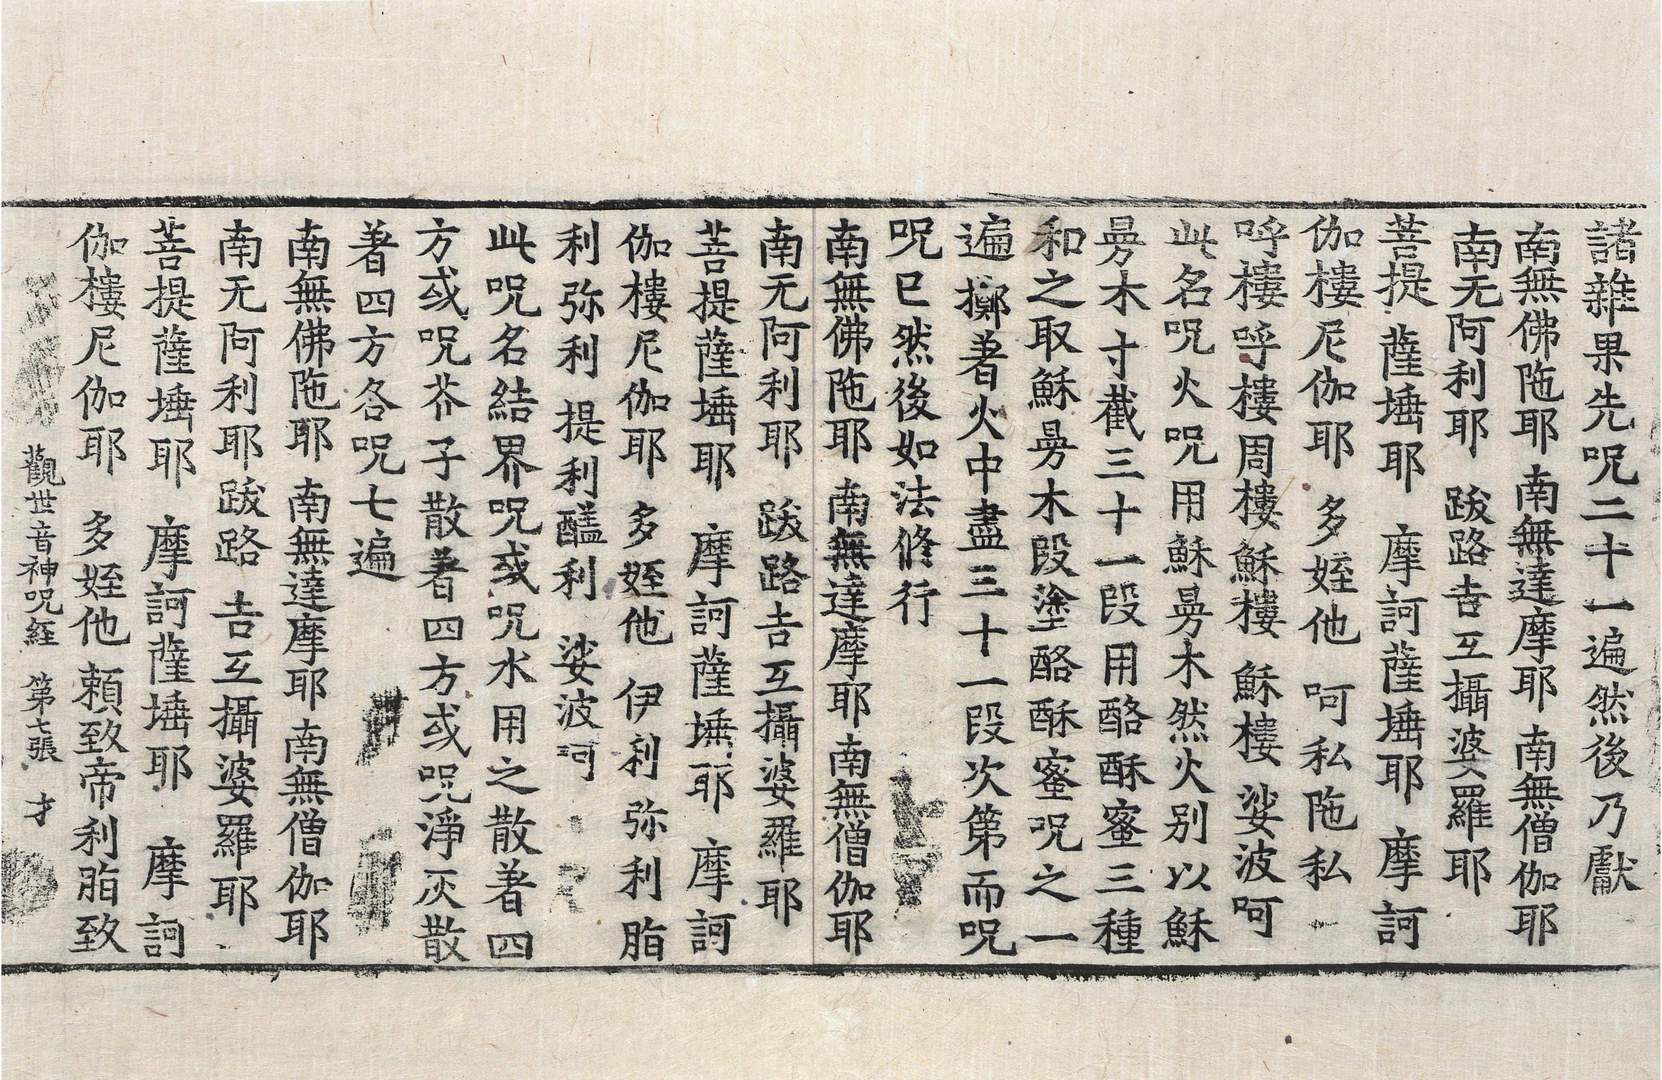 諸雜果先呪二十一遍然後乃獻
南無佛陁耶 南無達摩耶 南無僧伽耶
南无阿利耶 跋路吉互攝婆羅耶
菩提薩埵耶 摩訶薩埵耶 摩訶
伽樓尼伽耶 多姪他 呵私陁私
呼樓呼樓周樓 穌樓 穌樓 娑波呵
此名呪火呪用穌㫄木然火别以穌
㫄木寸截三十一段用酪酥蜜三種
和之取穌㫄木段塗酪酥蜜呪之一
遍擲著火中盡三十一段次第而呪
呪已然後如法修行
南無佛陁耶 南無達摩耶 南無僧伽耶
南无阿利耶 跋路吉互攝婆羅耶
菩提薩埵耶 摩訶薩埵耶 摩訶
伽樓尼伽耶 多姪他 伊利弥利脂
利弥利 提利醯利 娑波呵
此呪名結界呪或呪水用之散著四
方或呪芥子散著四方或呪淨灰散
著四方各呪七遍
南無佛陁耶 南無達摩耶 南無僧伽耶
南无阿利耶跋路吉互攝婆羅耶
菩提薩埵耶 摩訶薩埵耶 摩訶
伽樓尼伽耶 多姪他賴致帝利脂致
觀世音神呪經 第七張 才